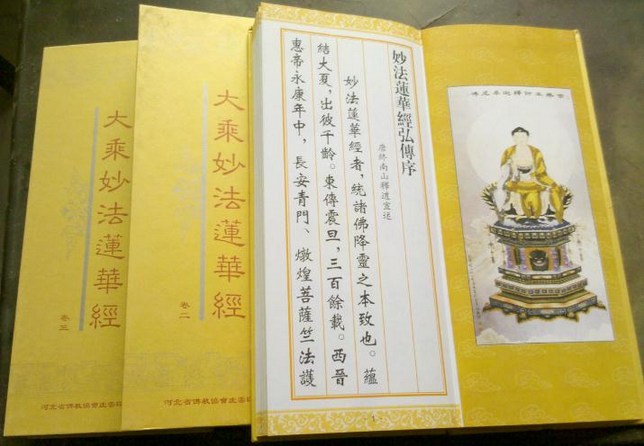 大乘妙法蓮華經
卷三
河北省佛教協會
大乘妙法蓮華經
卷二
河北省佛教協會
妙法蓮華經弘傳序
唐終南山釋道宣述
妙法蓮華經者，統諸佛降靈之本致也。蘊
結大夏，出彼千齡。東傳震旦，三百餘載。西晉
惠帝永康年中，長安青門、燉煌菩薩竺法護
1